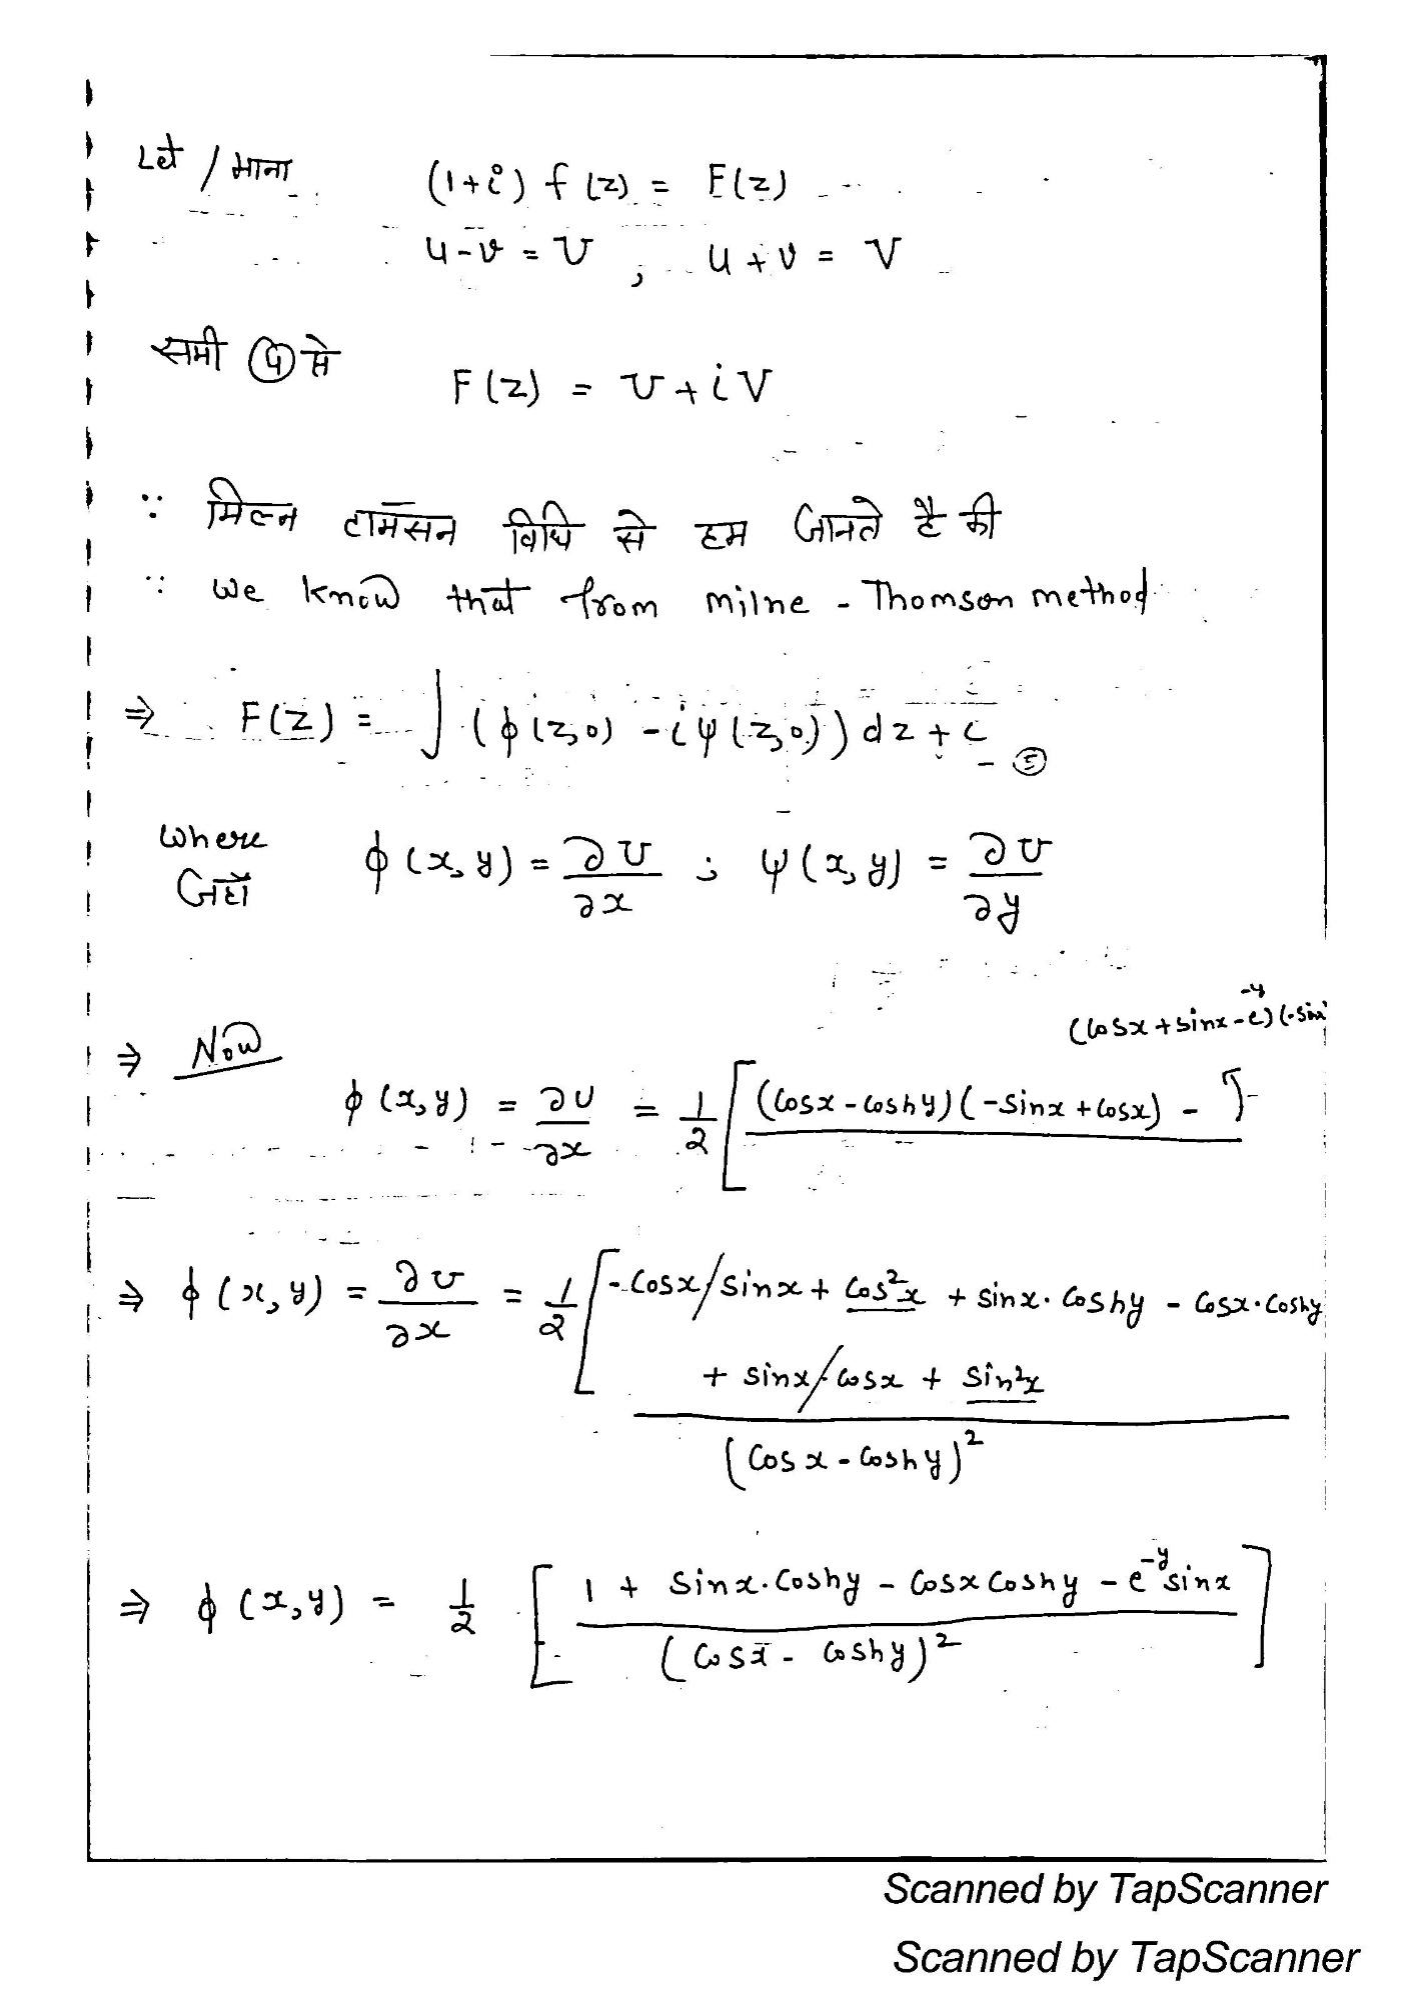 Let / माना (1+i) f(z) = F(z)
u-v = U , u+v = V
समी ④ से
F(z) = U + iV
∵ मिल्न टामॅसन विधि से हम जानते है की
∵ We know that from milne - Thomson method
⇒ F(z) = ∫ (ϕ(z,0) - iψ(z,0)) dz + c - ⑤
where जहाँ ϕ(x,y) = ∂U/∂x ; ψ(x,y) = ∂U/∂y
(cosx + sinx - e^-y) (-sin
⇒ Now
ϕ(x,y) = ∂U/∂x = 1/2 [ (cosx - coshy)(-sinx + cosx) - ]
⇒ ϕ(x,y) = ∂U/∂x = 1/2 [ -cosx/sinx + cos²x + sinx·coshy - cosx·coshy
+ sinx/·cosx + sin²x
(cosx - coshy)²
⇒ ϕ(x,y) = 1/2 [ 1 + sinx·coshy - cosx coshy - e^-y sinx / (cosx - coshy)² ]
Scanned by TapScanner
Scanned by TapScanner